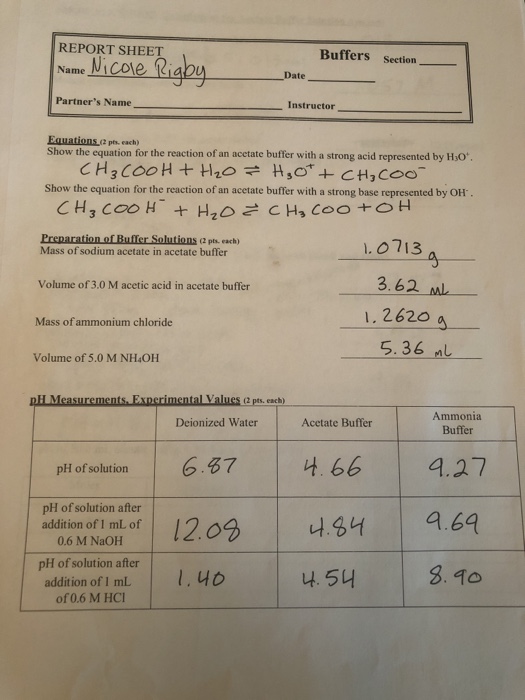 REPORT SHEET Buffers Section
Name Nicole Rigby Date
Partner's Name Instructor
Equations (2 pts. each)
Show the equation for the reaction of an acetate buffer with a strong acid represented by H₃O⁺.
CH₃COOH + H₂O ⇌ H₃O⁺ + CH₃COO⁻
Show the equation for the reaction of an acetate buffer with a strong base represented by OH⁻.
CH₃COOH⁻ + H₂O ⇌ CH₃COO + OH
Preparation of Buffer Solutions (2 pts. each)
Mass of sodium acetate in acetate buffer 1.0713 g
Volume of 3.0 M acetic acid in acetate buffer 3.62 mL
Mass of ammonium chloride 1.2620 g
Volume of 5.0 M NH₄OH 5.36 mL
pH Measurements, Experimental Values (2 pts. each)
Deionized Water Acetate Buffer Ammonia
Buffer
pH of solution 6.87 4.66 9.27
pH of solution after
addition of 1 mL of
0.6 M NaOH 12.08 4.84 9.69
pH of solution after
addition of 1 mL
of 0.6 M HCl 1.40 4.54 8.90